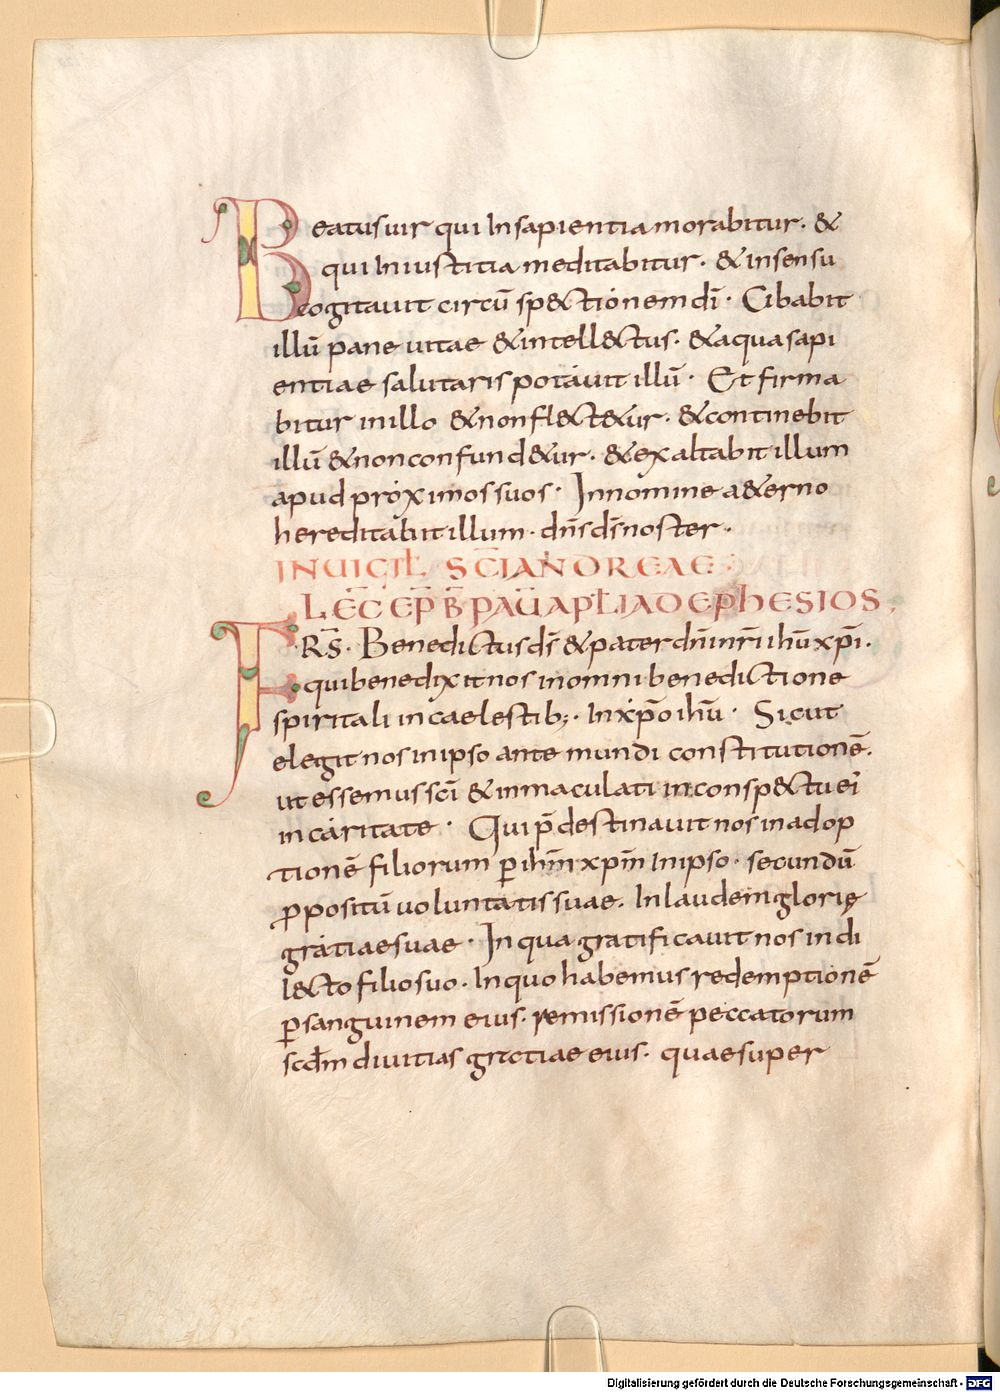 Beatus uir qui In sapientia morabitur. &
qui In iustitia meditabitur. & in sensu
cogitauit circū sp&ctionem dī. Cibabit
illū pane uitae & intell&ctus. & aqua sapi
entiae salutaris potauit illū. Et firma
bitur in illo & non fl&ct&ur. & continebit
illū & non confund&ur. & exaltabit illum
apud proximos suos. In nomine a&erno
hereditabit illum. dn̄s ds̄ noster.
IN UIGIL SC̄I ANDREAE
LEC̄ EP̄ B̄ PAU̅ APLI AD EPHESIOS.
FRS̄. Benedictus ds̄ & pater dn̄i nr̄i ihū xp̄i.
qui benedixit nos in omni benedictione
spiritali in caelestib;. In xp̄o ihū. Sicut
elegit nos in ipso ante mundi constitutionē.
ut essemus sc̄i & inmaculati in consp&ctu ei
in caritate. Qui p̄destinauit nos in adop
tionē filiorum ꝑ ihm̄ xpm̄ In ipso. secundū
ꝓpositū uoluntatis suae. In laudem glorię
gratiae suae. In qua gratificauit nos in di
l&cto filio suo. In quo habemus redemptionē
ꝑ sanguinem eius. remissionē peccatorum
scd̄m diuitias gratiae eius. quae super
Digitalisierung gefördert durch die Deutsche Forschungsgemeinschaft - DFG